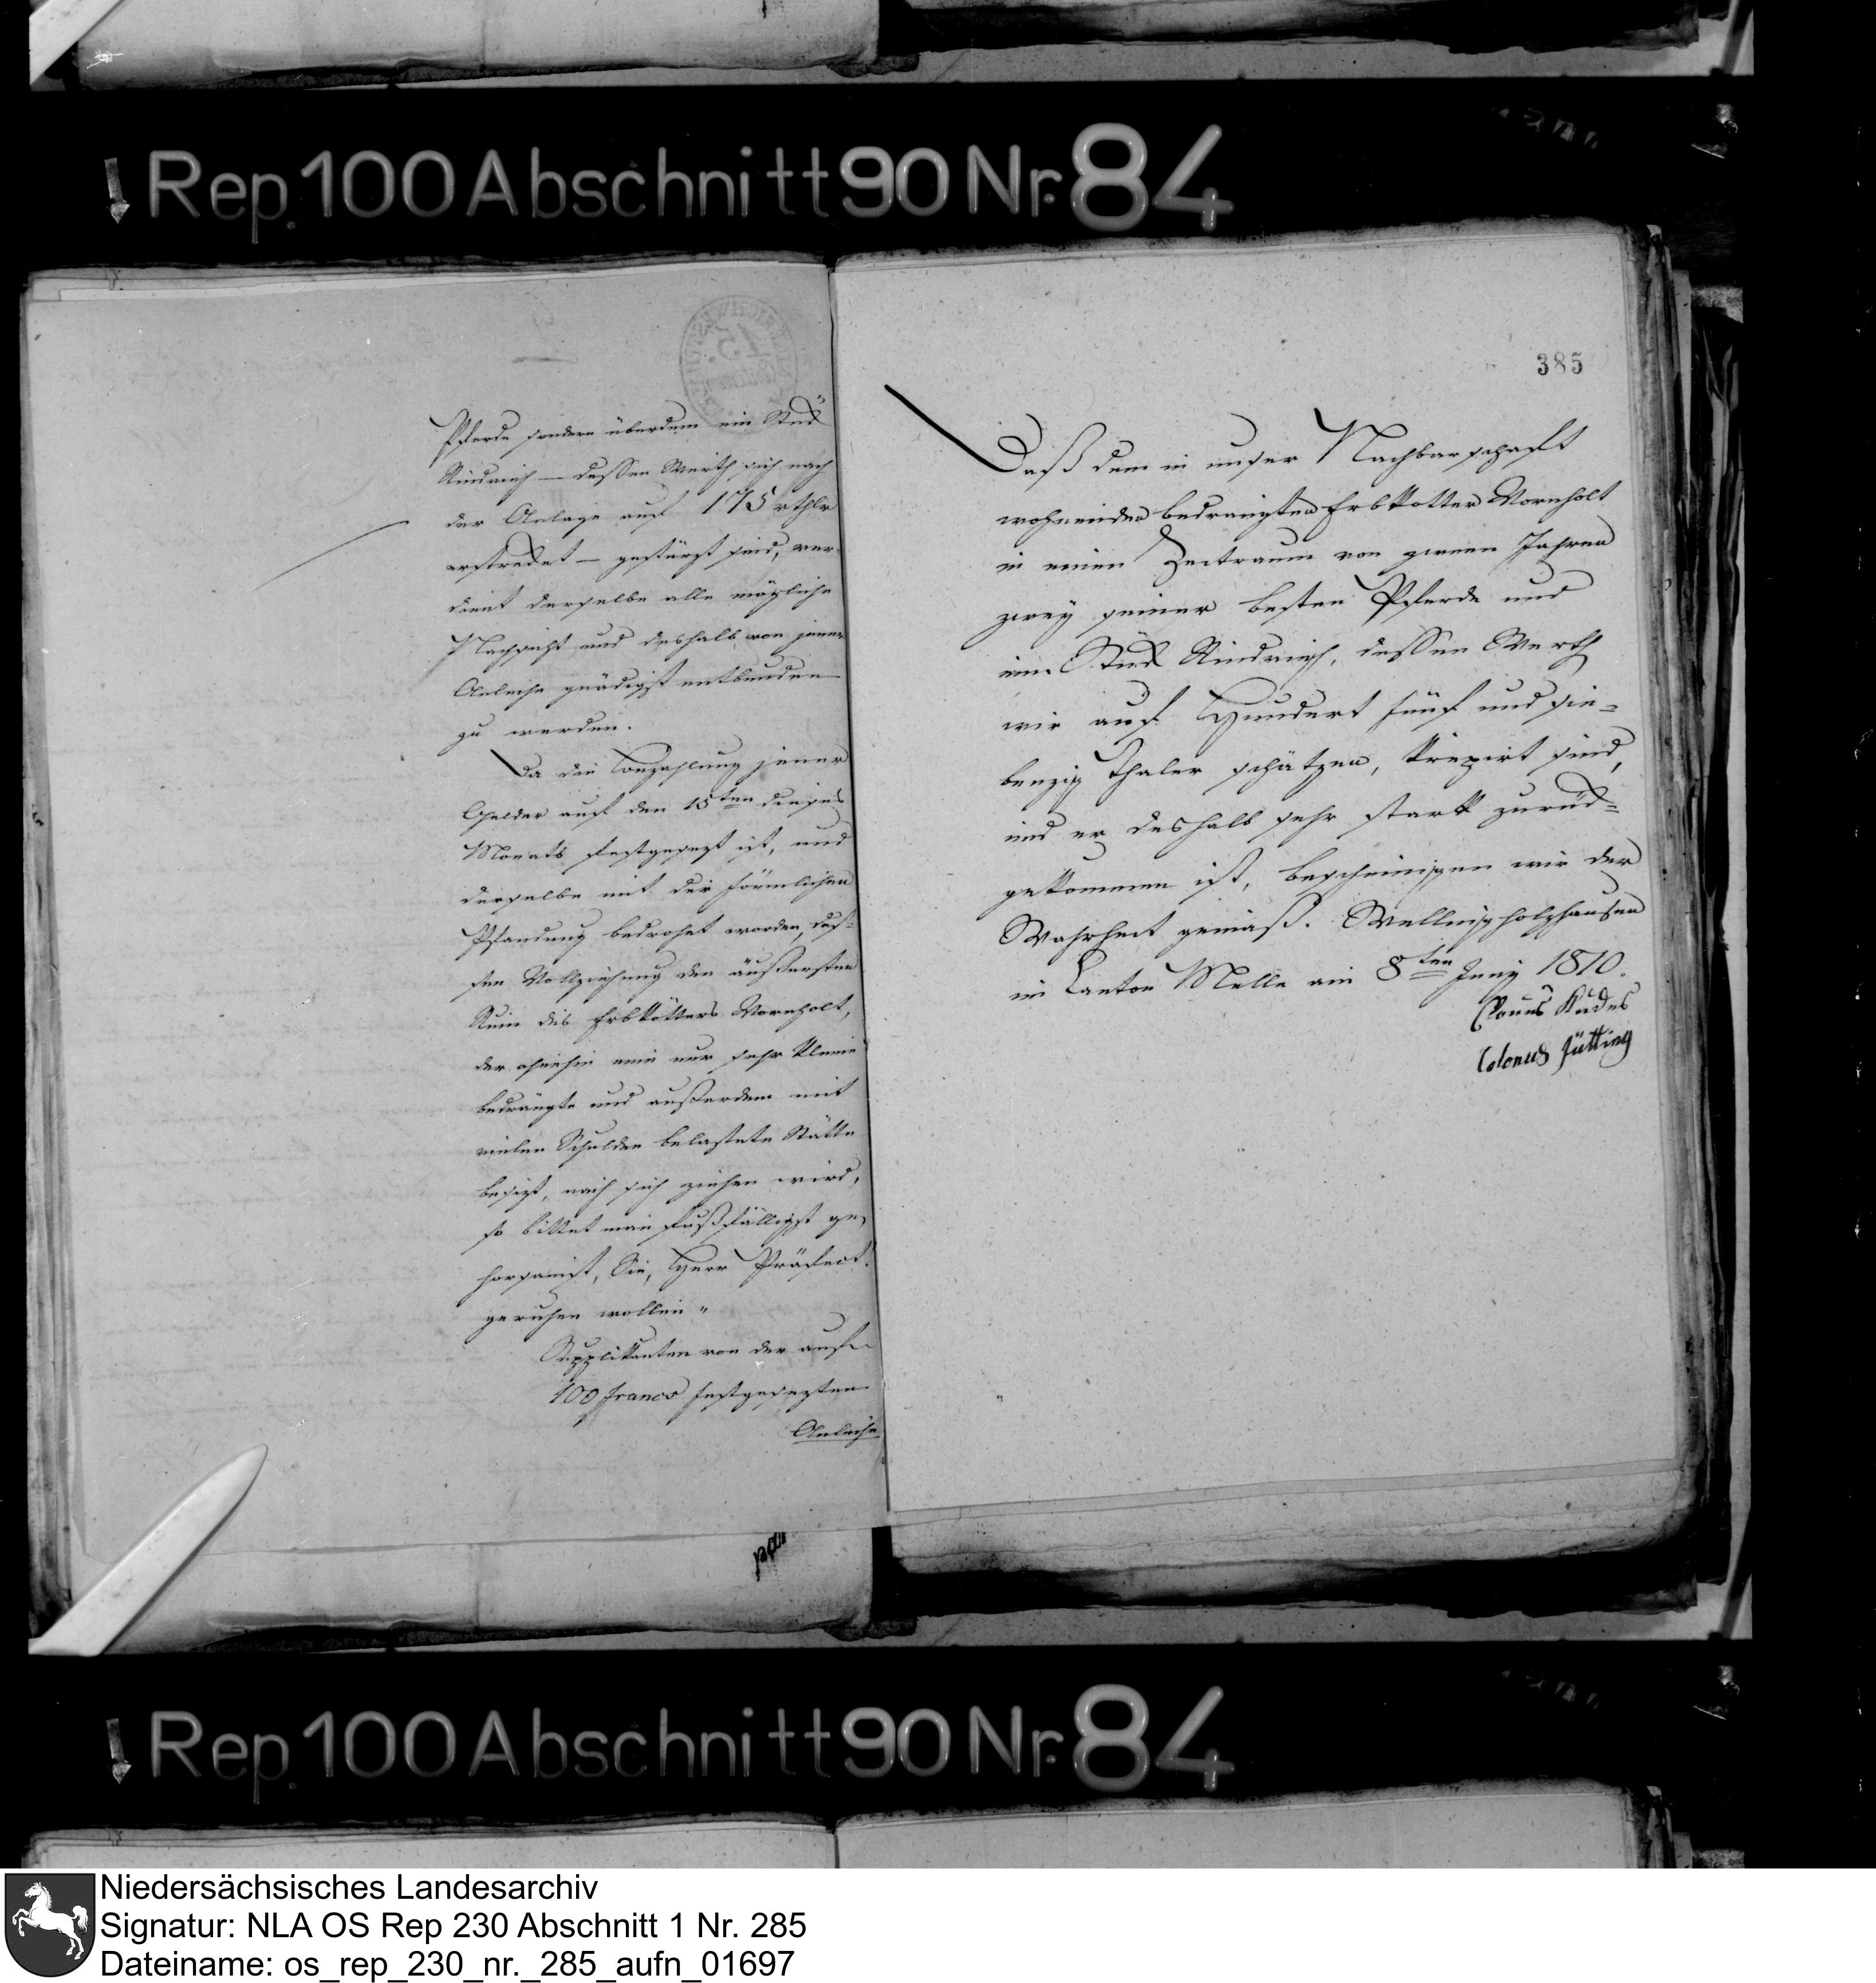 Rep. 100 Abschnitt 90 Nr. 84
Pferde sondern überdem ein Stück
Rindvieh — dessen Werth sich nach
der Anlage auf 175 rthlr
erstrecket — gestürzt sind, ver-
dient derselbe alle mögliche
Nachsicht und deshalb von jener
Anleihe gnädigst entbunden
zu werden.
Da die Einzahlung jener
Gelder auf den 15ten dieses
Monats festgesezt ist, und
derselbe mit der förmlichen
Pfandung bedrohet worden, des-
sen Vollziehung den äußersten
Ruin des Erbkötters Vornholt,
der ohnehin eine nur sehr kleine
bedrängte und außerdem mit
vielen Schulden belastete Stätte
besizt, nach sich ziehen wird,
so bittet man fußfälligst ge-
horsamst, Sie, Herr Präfect!
geruhen wollen "
Supplikanten von der auf
100 francs festgesezten
Anleihe
385
Daß dem in unser Nachbarschaft
wohnenden bedrängten Erbkotter Vornholt
in einen Zeitraum von zween Jahren
zwey seiner besten Pferde und
ein Stück Rindvieh, dessen Werth
wir auf Hundert fünf und sie-
benzig Thaler schätzen, krepirt sind,
und er deshalb sehr stark zurück-
gekommen ist, bescheinigen wir der
Wahrheit gemäß. Wellingholzhausen
im Canton Melle am 8ten Juny 1810.
Colonus Jütting
Rep. 100 Abschnitt 90 Nr. 84
Niedersächsisches Landesarchiv
Signatur: NLA OS Rep 230 Abschnitt 1 Nr. 285
Dateiname: os_rep_230_nr._285_aufn_01697